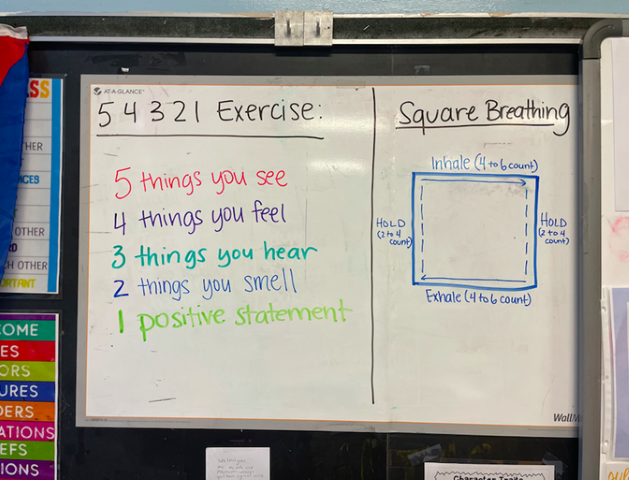 AT-A-GLANCE
5 4 3 2 1 Exercise:
5 things you see
4 things you feel
3 things you hear
2 things you smell
1 positive statement
Square Breathing
Inhale (4 to 6 count)
HOLD
(2 to 4
count)
HOLD
(2 to 4
count)
Exhale (4 to 6 count)
SS
HER
OTHER
CH OTHER
COME
ES
ORS
URES
DERS
ATIONS
EFS
IONS
Character Traits